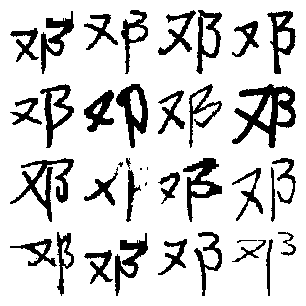 邓邓邓邓
邓邓邓邓
邓邓邓邓
邓邓邓邓